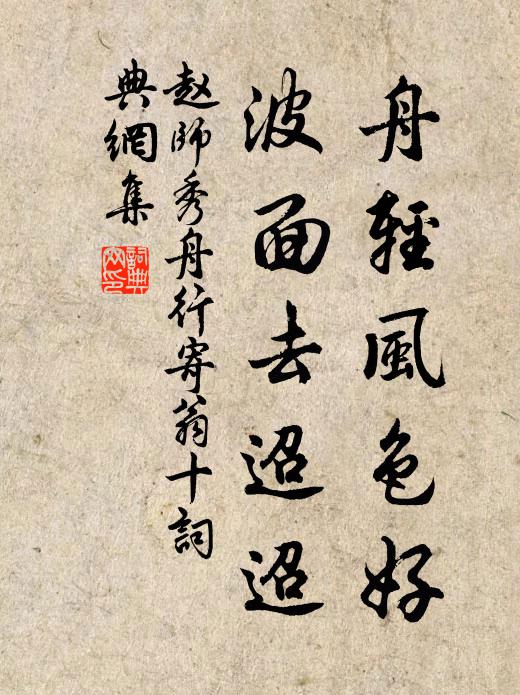 舟輕風色好
波面去迢迢
赵師秀舟行寄翁十詞
典網集
詞典網印